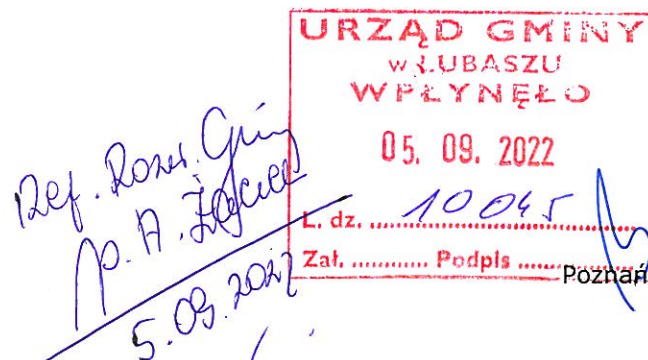 URZĄD GMINY
w LUBASZU
WPŁYNĘŁO
05. 09. 2022
L. dz. 10045
Zał. ............ Podpis ............
Poznań
Ref. Rozw. Gminy
p. A.
5.09.2022